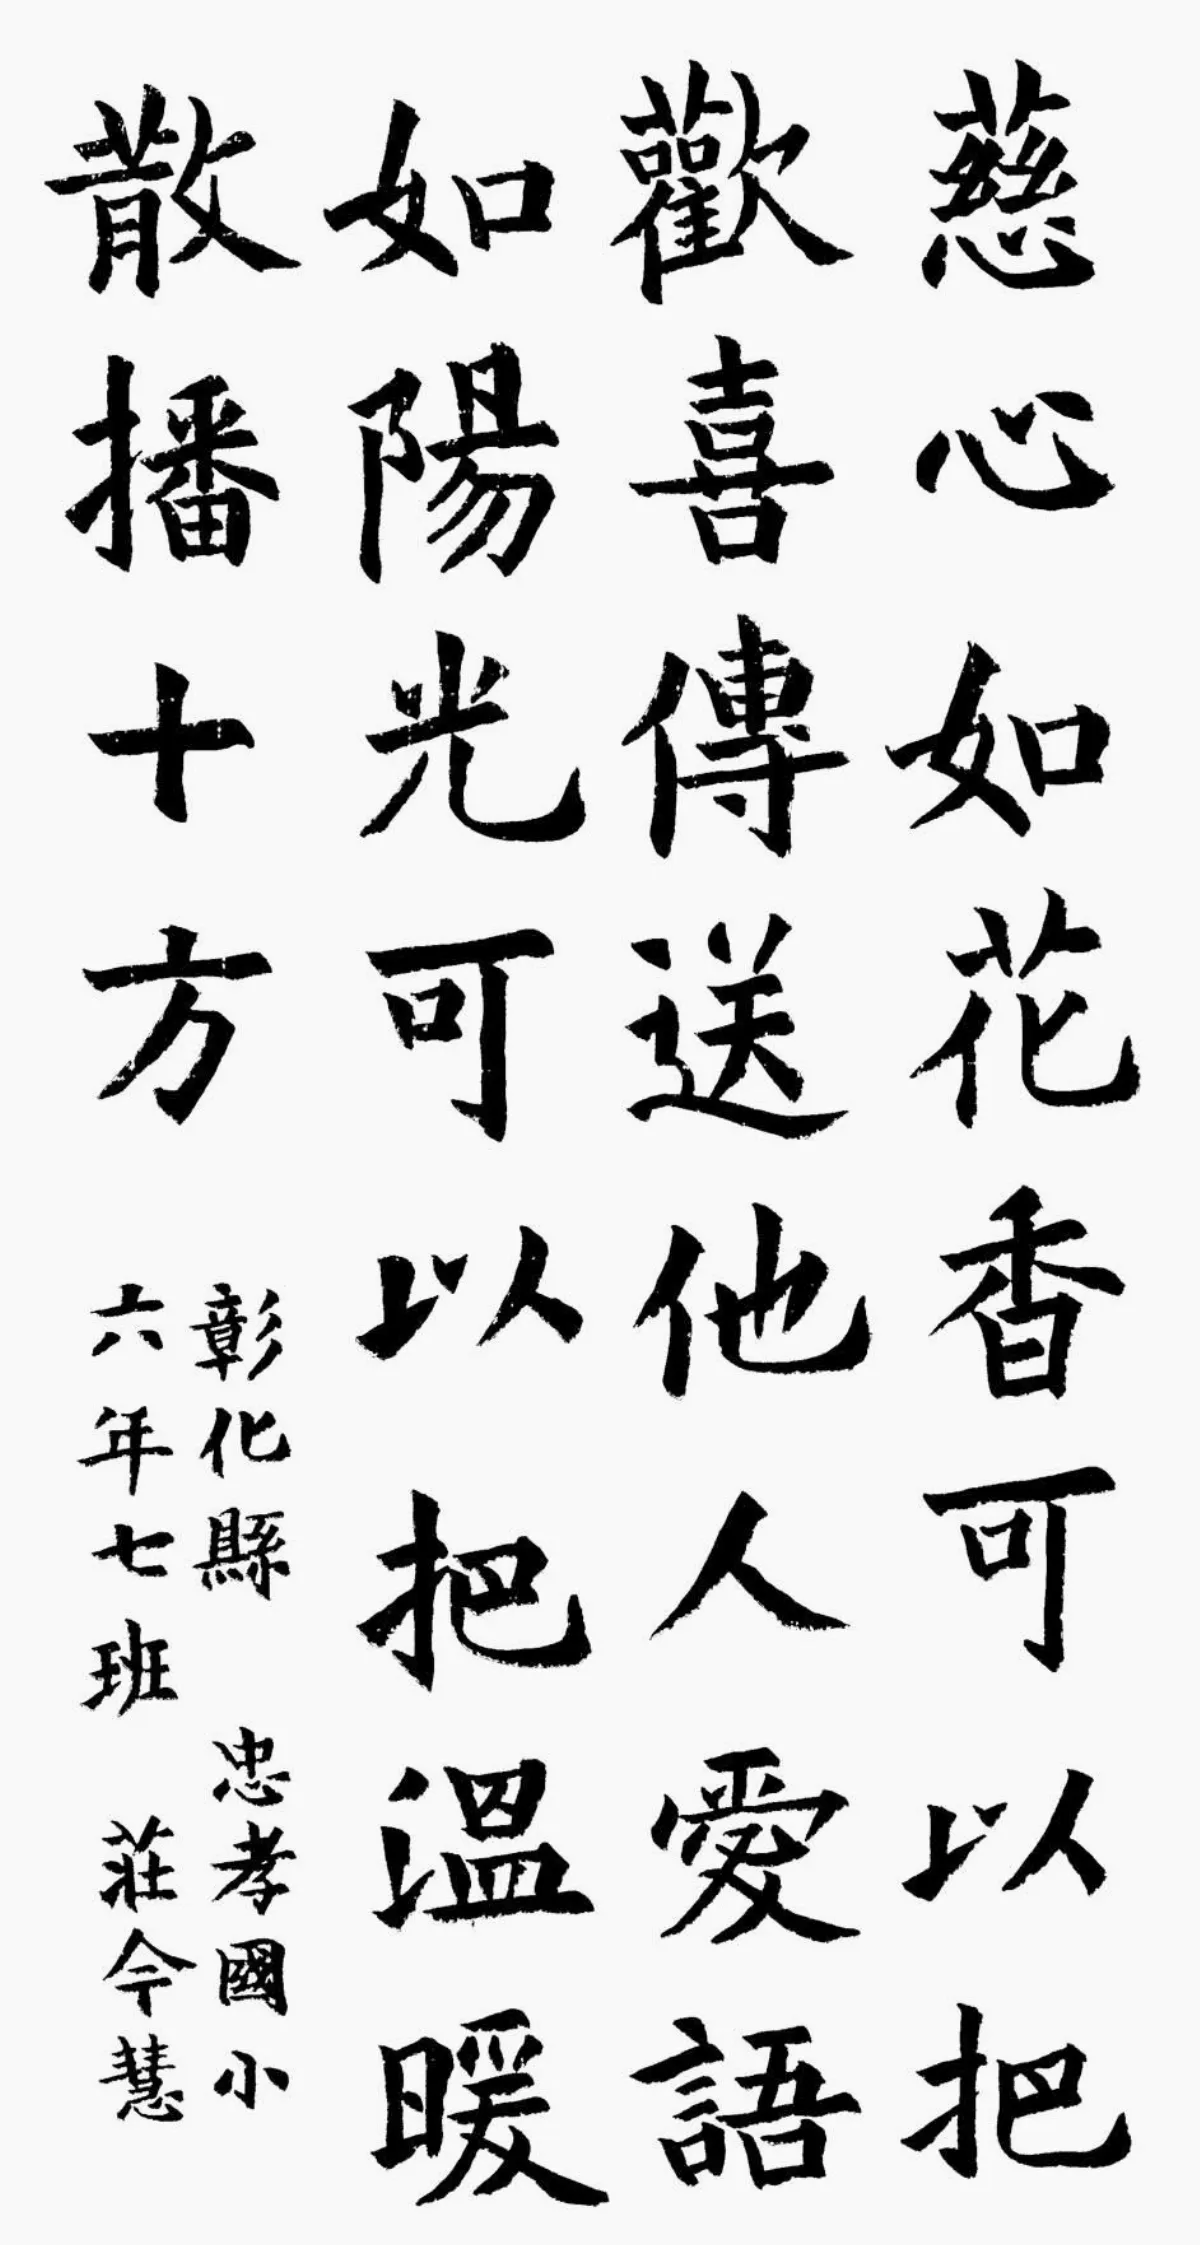 慈心如花香可以把
歡喜傳送他人愛語
如陽光可以把溫暖
散播十方
彰化縣 忠孝國小
六年七班 莊今慧